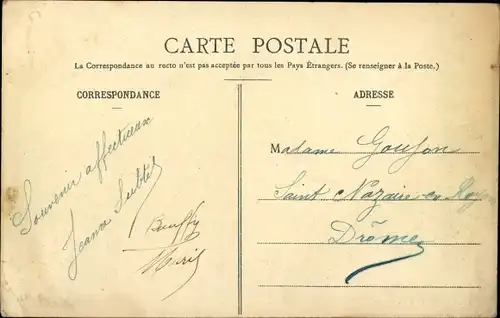 CARTE POSTALE
La Correspondance au recto n'est pas acceptée par tous les Pays Étrangers. (Se renseigner à la Poste.)
CORRESPONDANCE
Souvenir affectueux
Jeanne
ADRESSE
Madame Goujon
Saint Nazaire en
Drôme